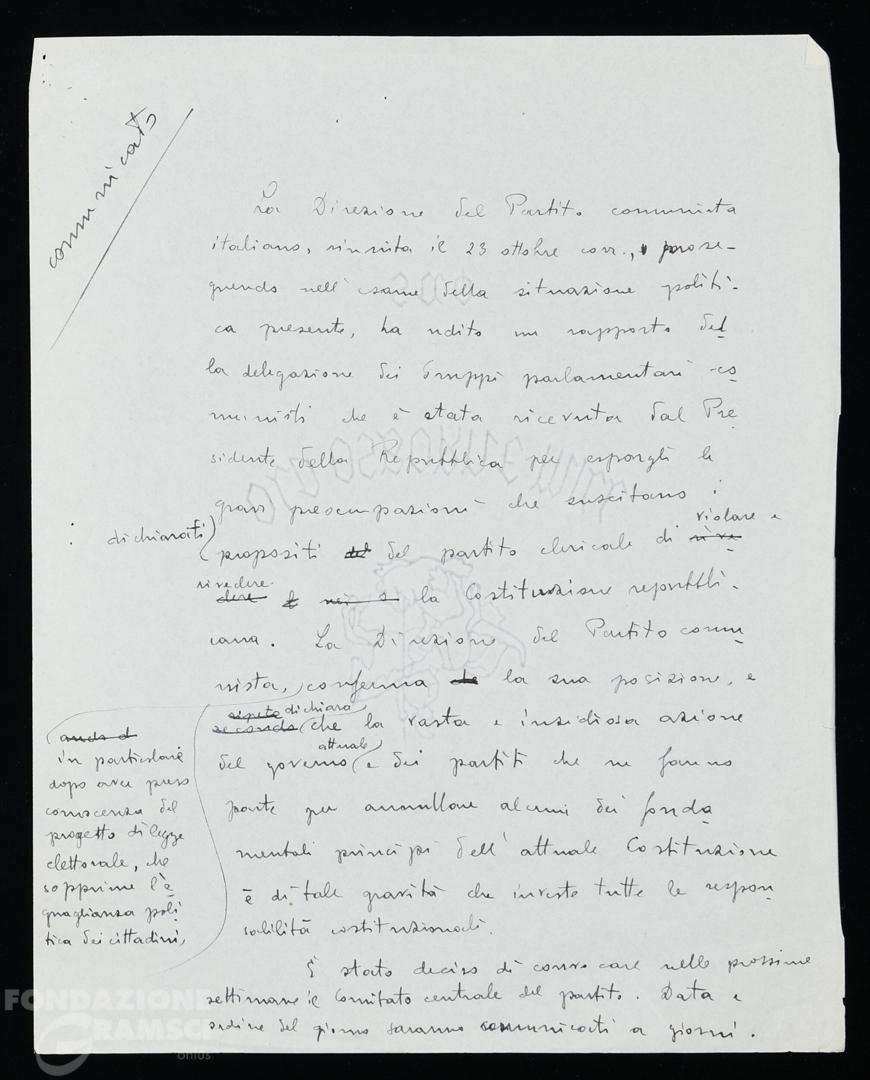 comunicato
La Direzione del Partito comunista
italiano, riunita il 23 ottobre corr., prose-
guendo nell'esame della situazione politi-
ca presente, ha udito un rapporto del
la delegazione dei Gruppi parlamentari co
munisti che è stata ricevuta dal Pre
sidente della Repubblica per esporgli le
gravi preoccupazioni che suscitano i
dichiarati
propositi del del partito clericale di rive
violare e
rivedere
dere la Costituzione repubbli-
cana. La Direzione del Partito comu
nista, conferma la sua posizione, e
ripete dichiara
seconda che la vasta e insidiosa azione
attuale
del governo e dei partiti che ne fanno
parte per annullare alcuni dei fonda
mentali principi dell'attuale Costituzione
è di tale gravità che investe tutte le respon
sabilità costituzionali.
in particolare
dopo aver preso
conoscenza del
progetto di legge
elettorale, che
sopprime l'e
guaglianza poli
tica dei cittadini,
È stato deciso di convocare nelle prossime
settimane il Comitato centrale del partito. Data e
ordine del giorno saranno comunicati a giorni.
FONDAZIONE
GRAMSCI
onlus